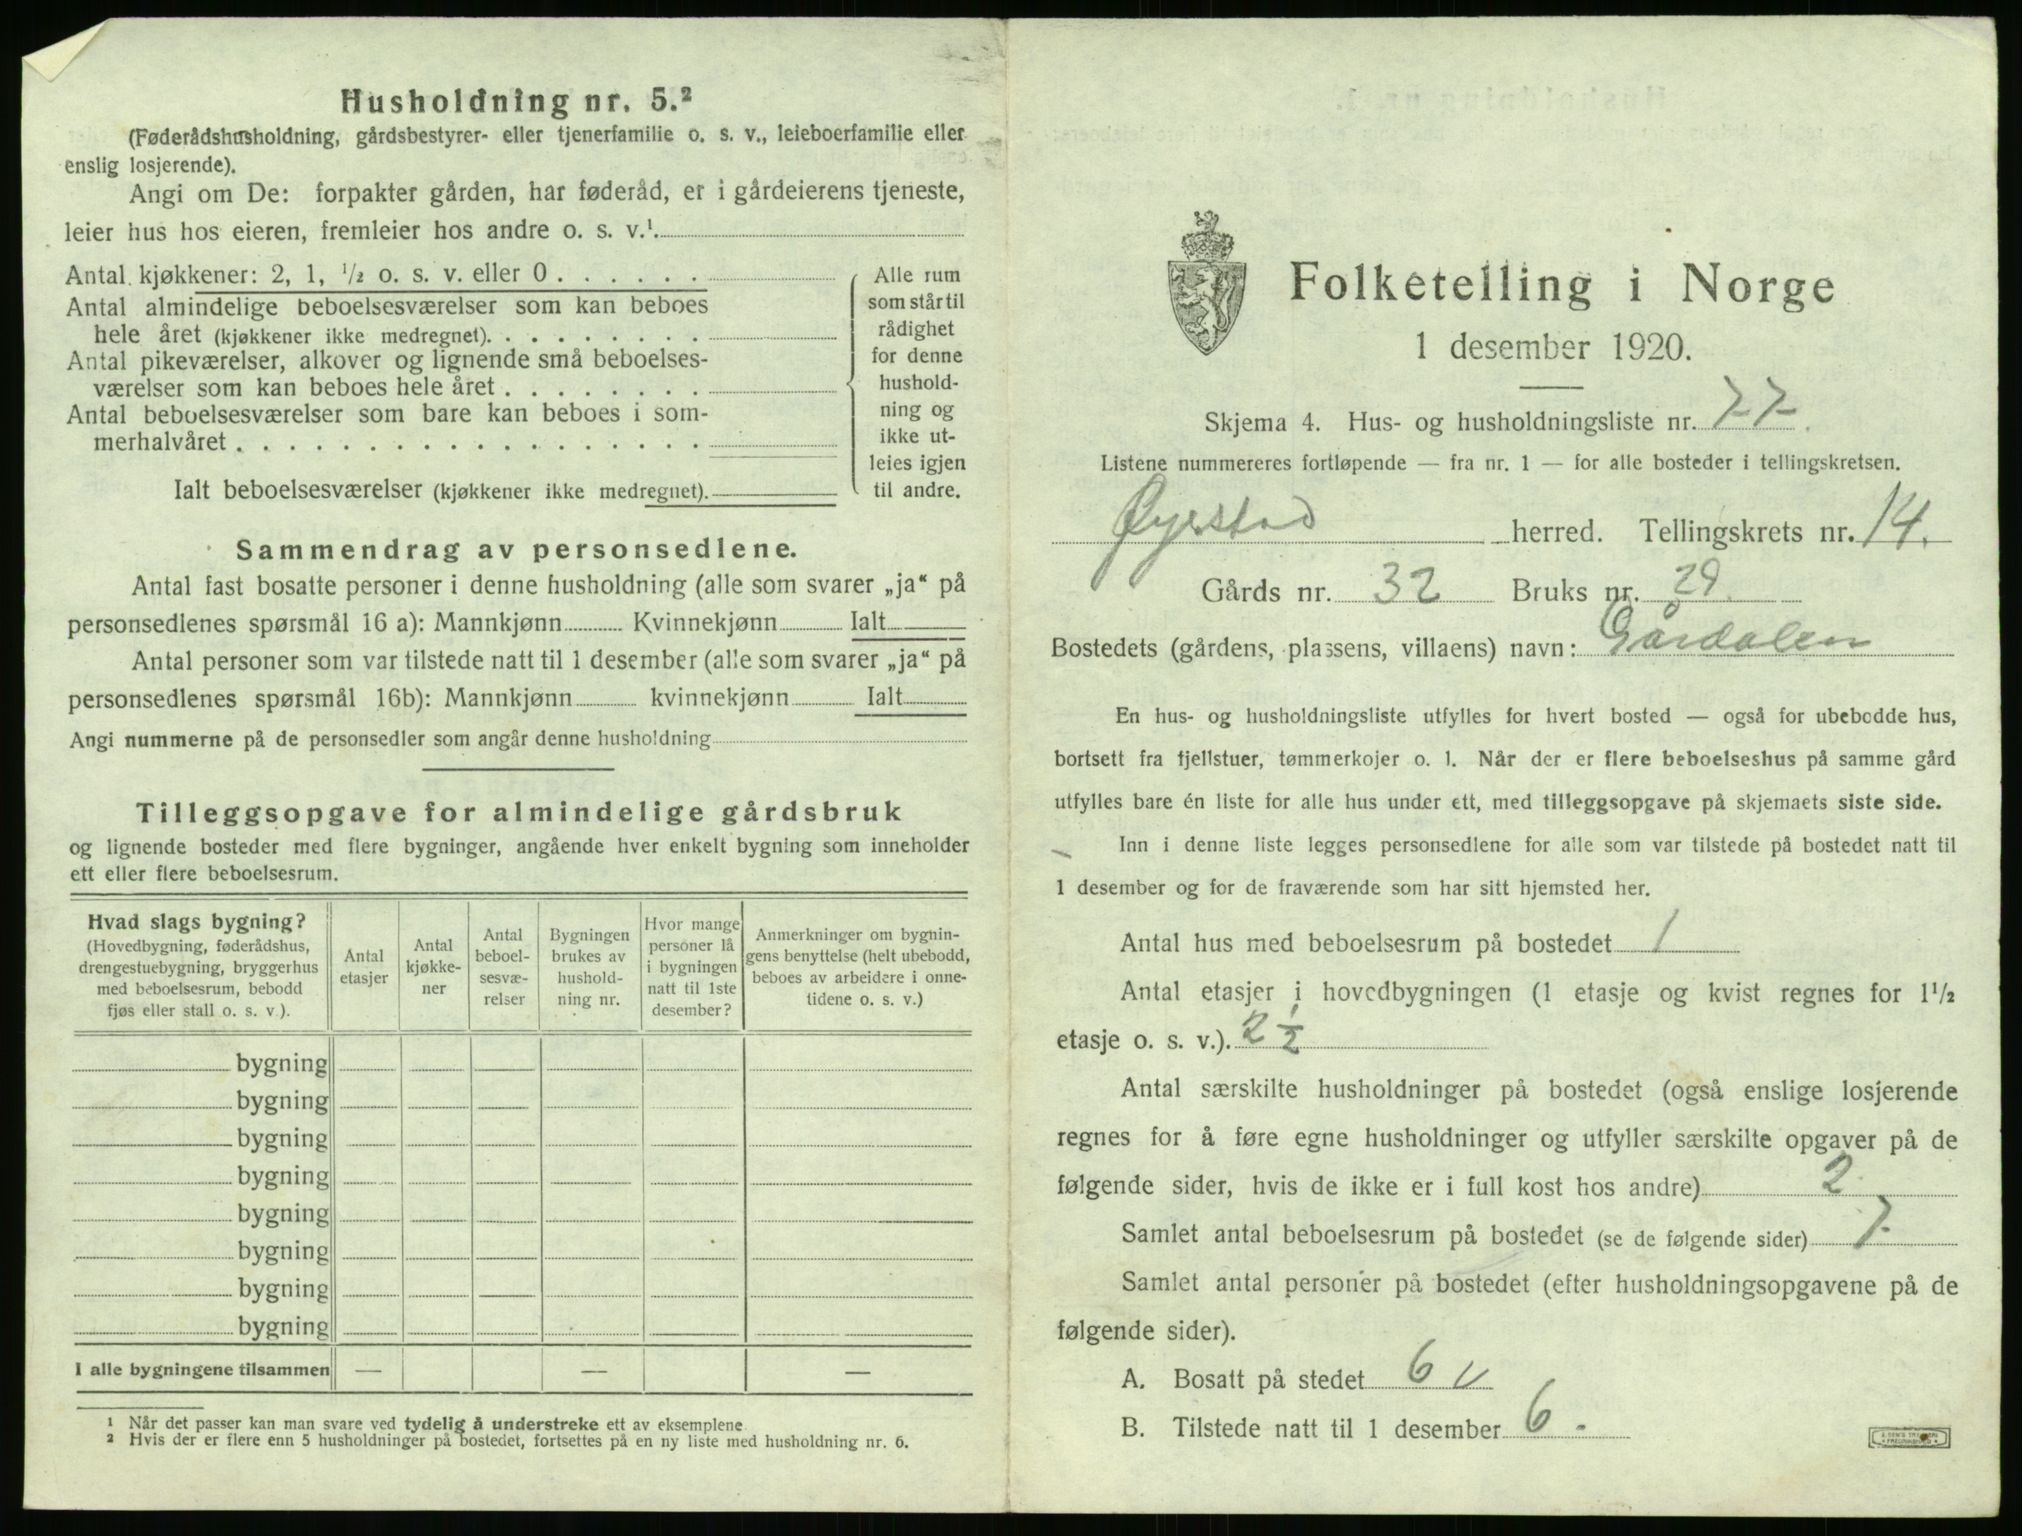 Husholdning nr. 5.²
(Føderådshusholdning, gårdsbestyrer- eller tjenerfamilie o. s. v., leieboerfamilie eller
enslig losjerende).
Angi om De: forpakter gården, har føderåd, er i gårdeierens tjeneste,
leier hus hos eieren, fremleier hos andre o. s. v.¹.
Antal kjøkkener: 2, 1, ½ o. s. v. eller 0 . . . . . .
Antal almindelige beboelsesværelser som kan beboes
hele året (kjøkkener ikke medregnet). . . . . . . . .
Antal pikeværelser, alkover og lignende små beboelses-
værelser som kan beboes hele året . . . . . . . .
Antal beboelsesværelser som bare kan beboes i som-
merhalvåret . . . . . . . . . . . . . . . . . .
Ialt beboelsesværelser (kjøkkener ikke medregnet).
Alle rum
som står til
rådighet
for denne
hushold-
ning og
ikke ut-
leies igjen
til andre.
Sammendrag av personsedlene.
Antal fast bosatte personer i denne husholdning (alle som svarer „ja“ på
personsedlenes spørsmål 16 a): Mannkjønn Kvinnekjønn Ialt
Antal personer som var tilstede natt til 1 desember (alle som svarer „ja“ på
personsedlenes spørsmål 16b): Mannkjønn kvinnekjønn Ialt
Angi nummerne på de personsedler som angår denne husholdning
Tilleggsopgave for almindelige gårdsbruk
og lignende bosteder med flere bygninger, angående hver enkelt bygning som inneholder
ett eller flere beboelsesrum.
Hvad slags bygning?
(Hovedbygning, føderådshus,
drengestuebygning, bryggerhus
med beboelsesrum, bebodd
fjøs eller stall o. s. v.).
Antal
etasjer
Antal
kjøkke-
ner
Antal
beboel-
sesvæ-
relser
Bygningen
brukes av
hushold-
ning nr.
Hvor mange
personer lå
i bygningen
natt til 1ste
desember?
Anmerkninger om bygnin-
gens benyttelse (helt ubebodd,
beboes av arbeidere i onne-
tidene o. s. v.)
bygning
bygning
bygning
bygning
bygning
bygning
bygning
bygning
I alle bygningene tilsammen — — —
¹ Når det passer kan man svare ved tydelig å understreke ett av eksemplene.
² Hvis der er flere enn 5 husholdninger på bostedet, fortsettes på en ny liste med husholdning nr. 6.
Folketelling i Norge
1 desember 1920.
Skjema 4. Hus- og husholdningsliste nr. 77.
Listene nummereres fortløpende — fra nr. 1 — for alle bosteder i tellingskretsen.
Øyestad herred. Tellingskrets nr. 14.
Gårds nr. 32 Bruks nr. 29.
Bostedets (gårdens, plassens, villaens) navn: Gårdalen
En hus- og husholdningsliste utfylles for hvert bosted — også for ubebodde hus,
bortsett fra fjellstuer, tømmerkojer o. l. Når der er flere beboelseshus på samme gård
utfylles bare én liste for alle hus under ett, med tilleggsopgave på skjemaets siste side.
Inn i denne liste legges personsedlene for alle som var tilstede på bostedet natt til
1 desember og for de fraværende som har sitt hjemsted her.
Antal hus med beboelsesrum på bostedet 1
Antal etasjer i hovedbygningen (1 etasje og kvist regnes for 1½
etasje o. s. v.). 2½
Antal særskilte husholdninger på bostedet (også enslige losjerende
regnes for å føre egne husholdninger og utfyller særskilte opgaver på de
følgende sider, hvis de ikke er i full kost hos andre) 2
Samlet antal beboelsesrum på bostedet (se de følgende sider) 7
Samlet antal personer på bostedet (efter husholdningsopgavene på de
følgende sider).
A. Bosatt på stedet 6
B. Tilstede natt til 1 desember 6.